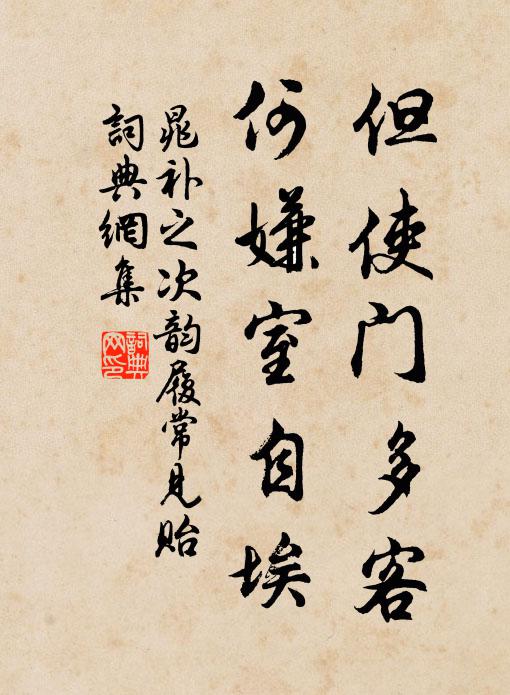 但使門多客
何嫌室自埃
晁补之次韵履常見貽
詞典網集
詞典網印